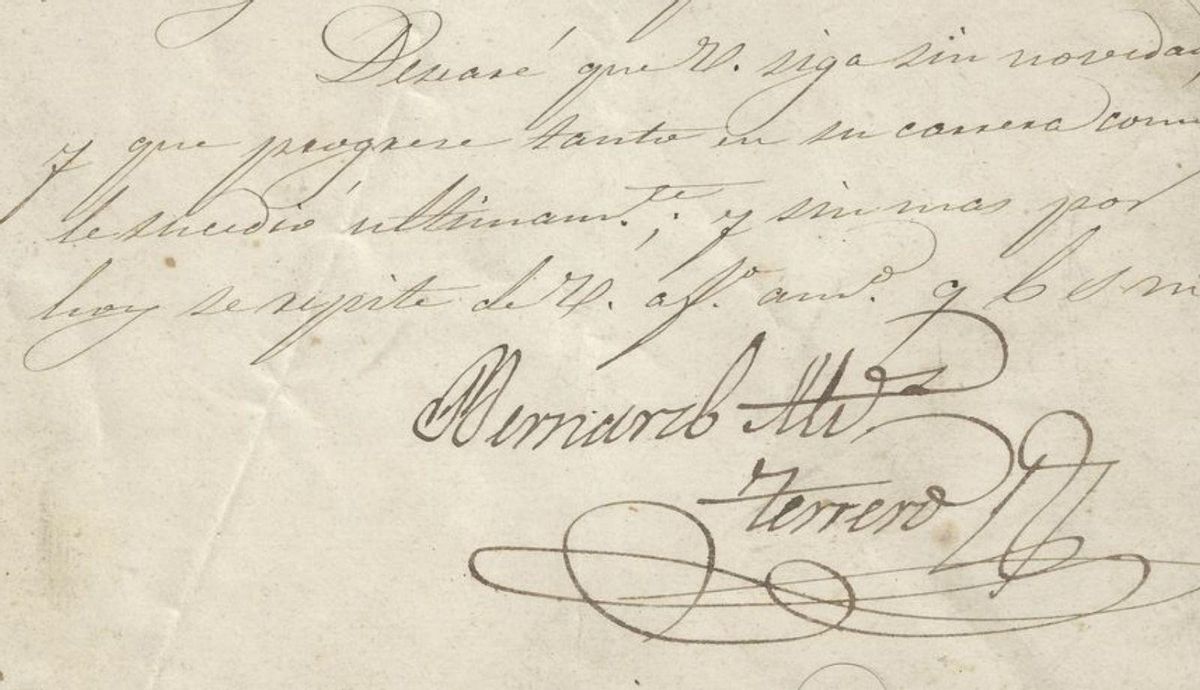 Desearé que V. siga sin novedad,
y que progrese tanto en su carrera como
le sucedió ultimam.te; y sin mas por
hoy se repite de V. af.o am.o q b s m
Bernardo
Terrero